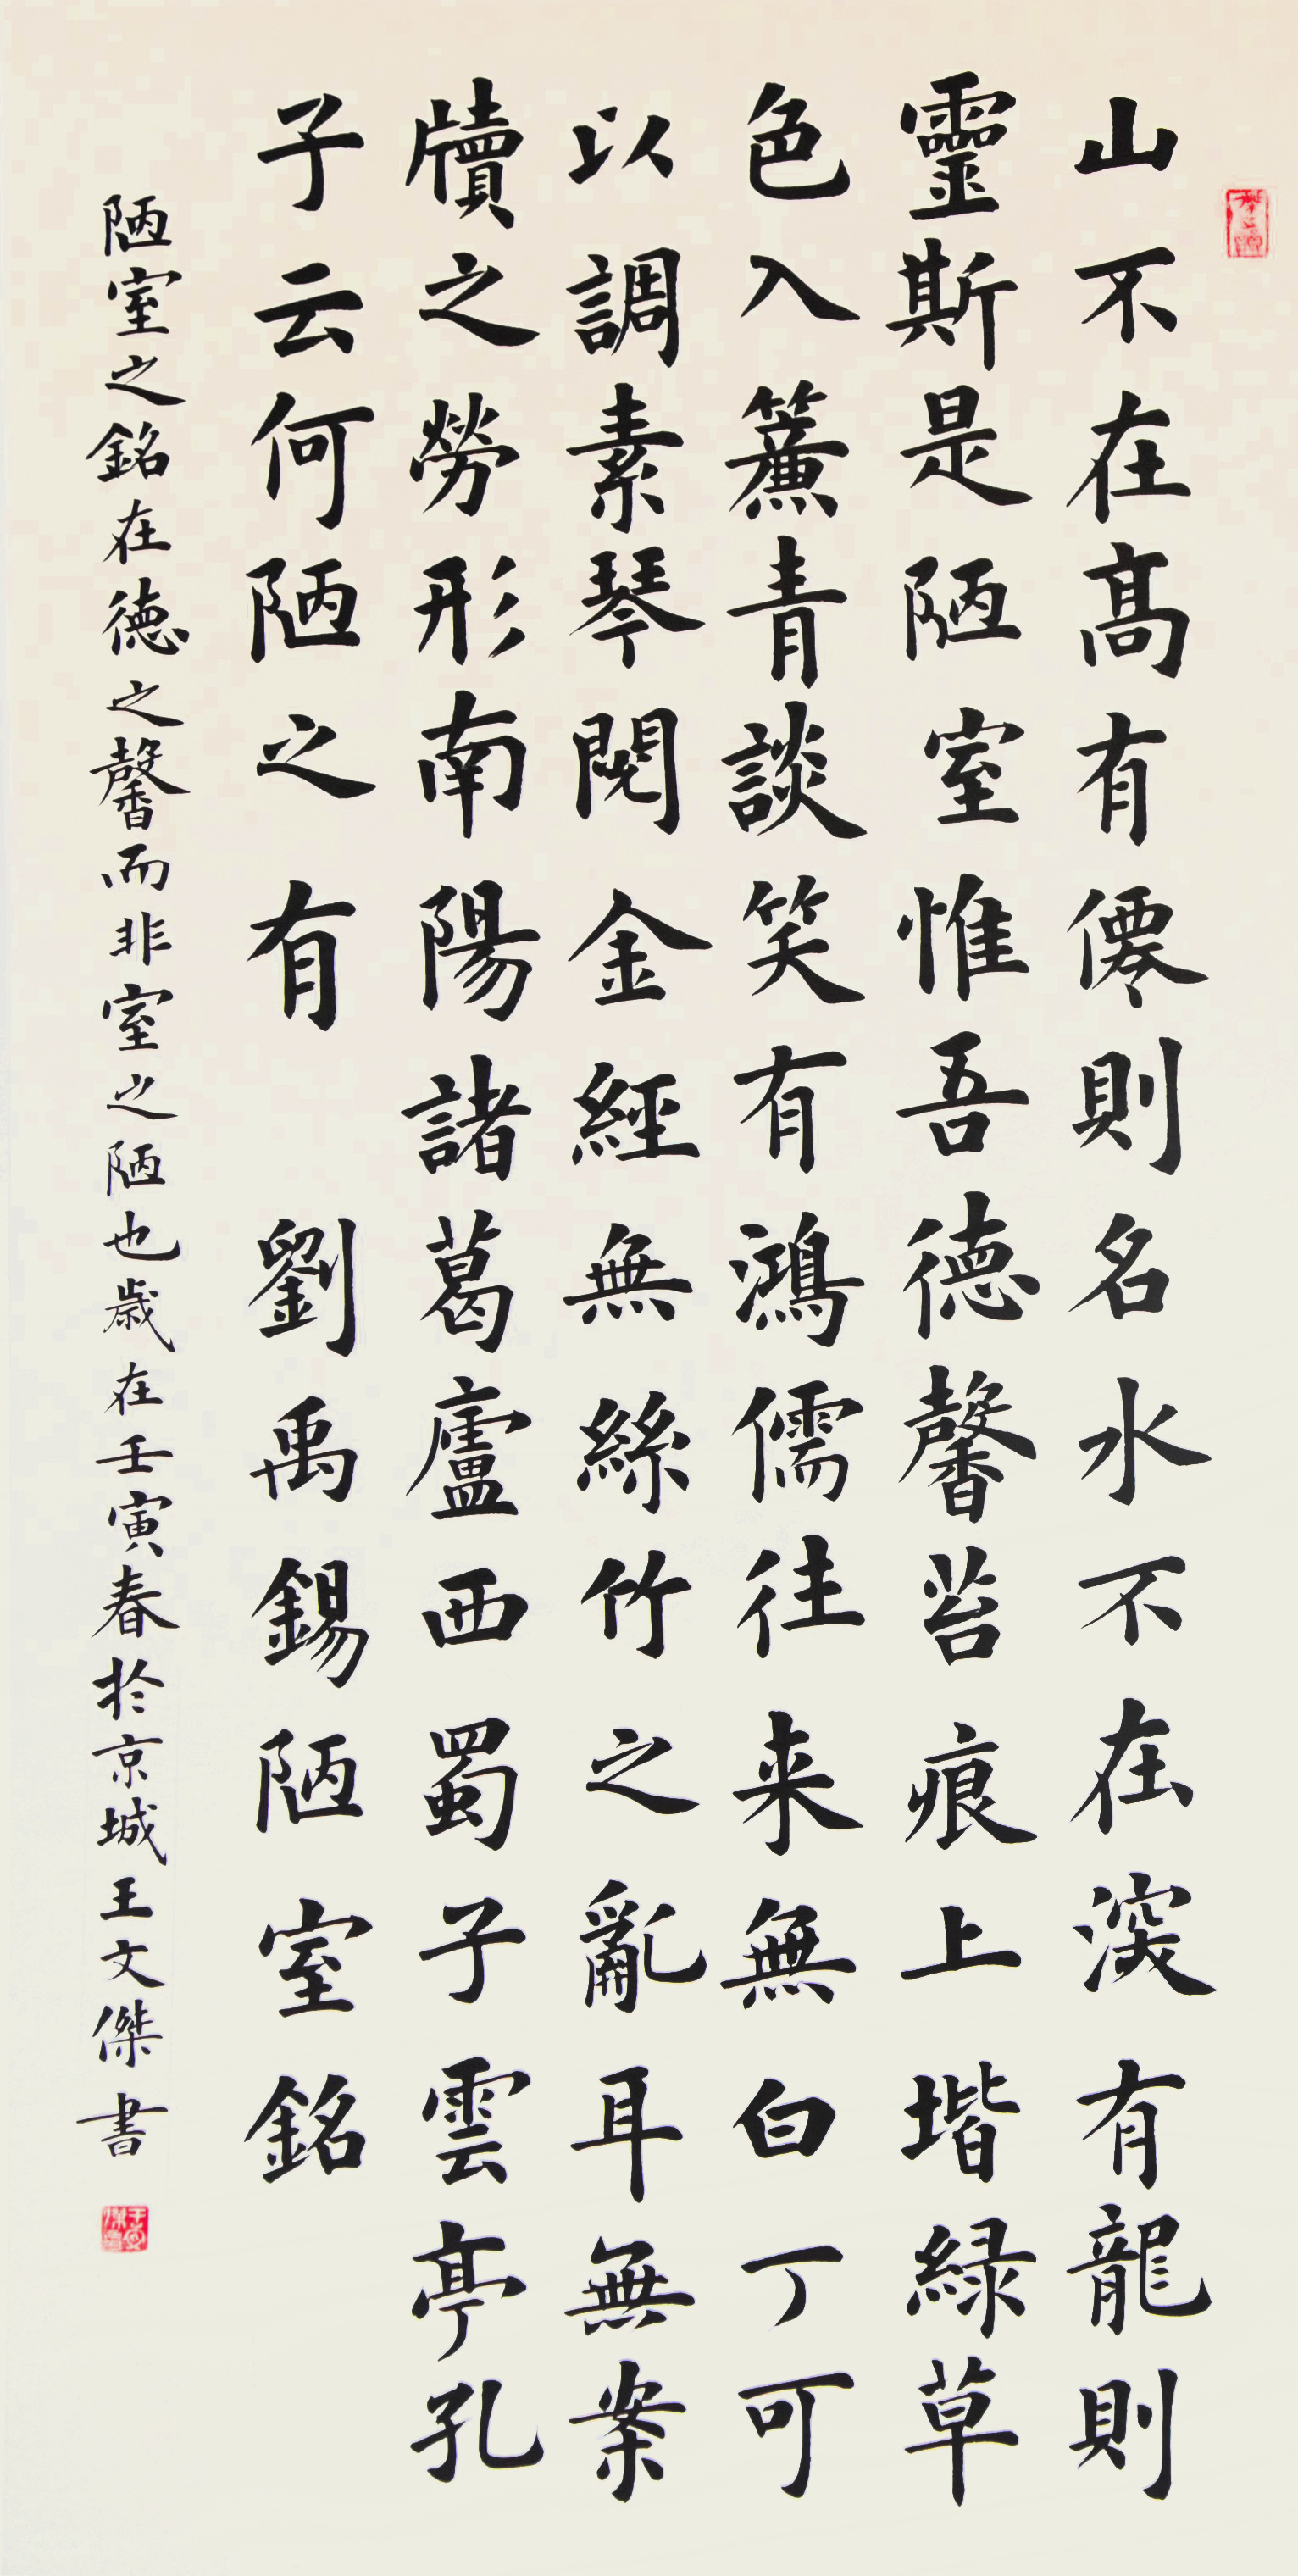 山不在高有僊則名水不在深有龍則
靈斯是陋室惟吾德馨苔痕上堦緑草
色入簾青談笑有鴻儒往来無白丁可
以調素琴閱金經無絲竹之亂耳無案
牘之勞形南陽諸葛廬西蜀子雲亭孔
子云何陋之有 劉禹錫陋室銘
陋室之銘在德之馨而非室之陋也歳在壬寅春於京城王文傑書